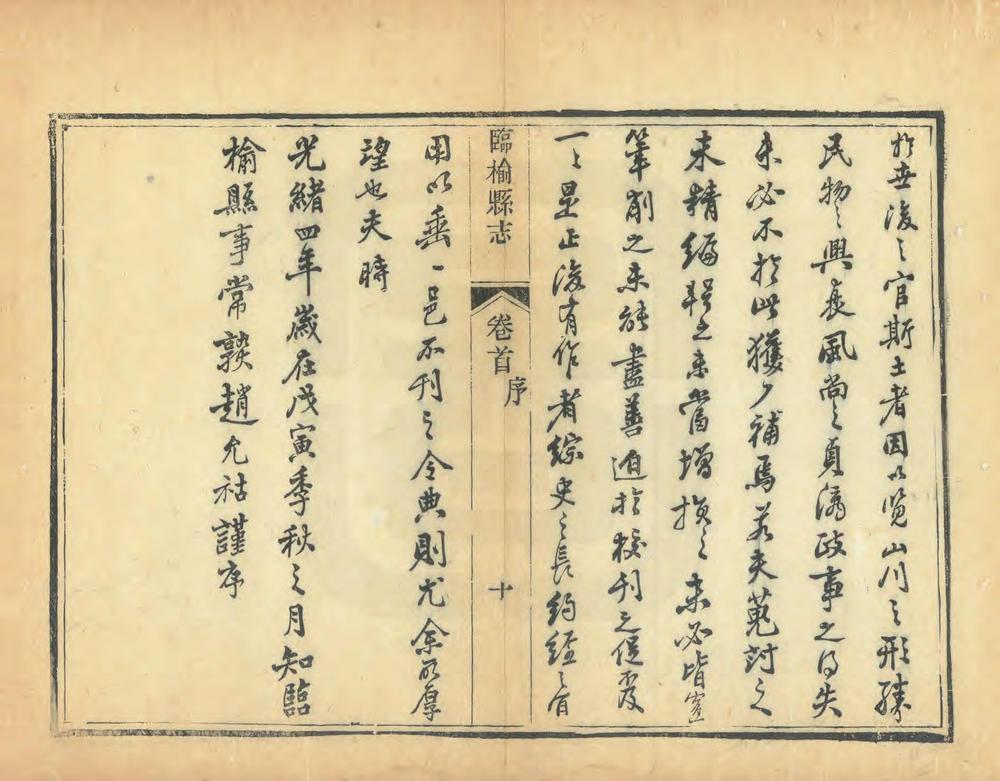 於世後之官斯土者因以覽山川之形勝
民物之興衰風尚之貞淫政事之得失
未必不於此獲少補焉若夫蒐討之
未精編輯之未當增損之未必皆宜
筆削之未能盡善迫於校刊之促覆
一一是正後有作者綜史之長約經之旨
臨榆縣志
卷首
序
十
用以垂一邑不刊之令典則尤余所厚
望也夫時
光緒四年歲在戊寅季秋之月知臨
榆縣事常燚趙允祜謹序